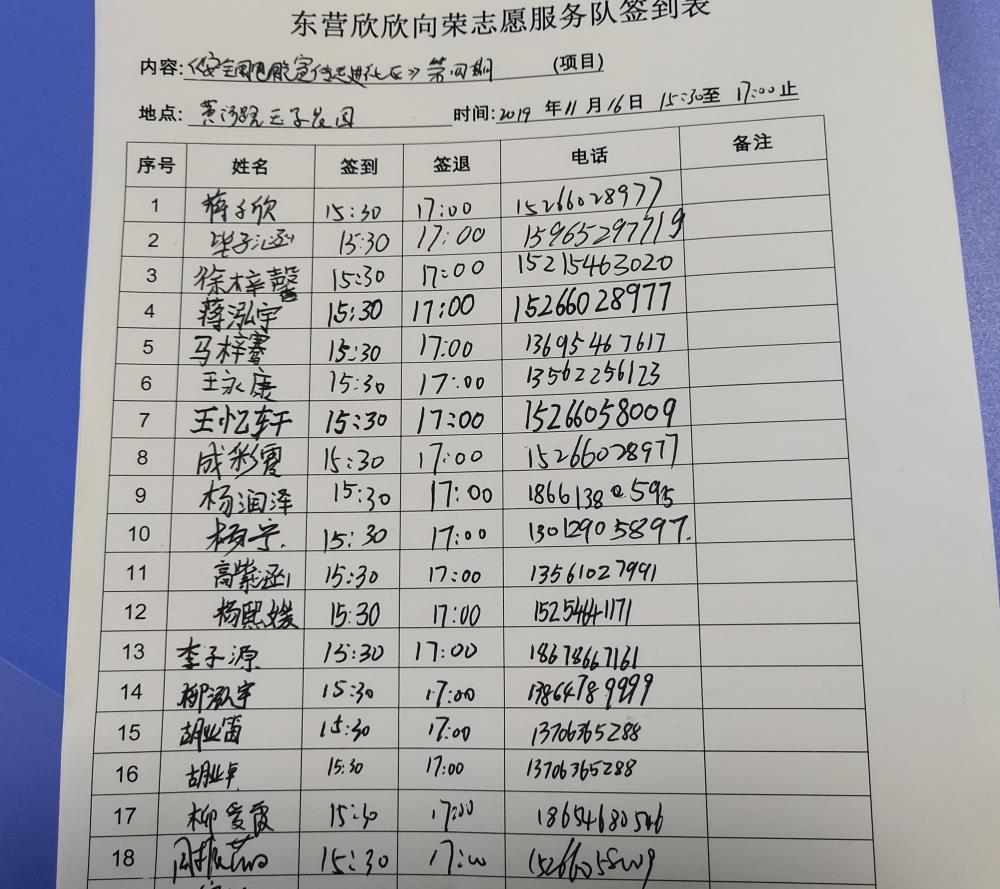 东营欣欣向荣志愿服务队签到表
内容:《安全用电宣传走进社区》第四期 (项目)
地点: 黄河路 时间: 2019 年 11 月 16 日 15:30 至 17:00 止
序号 姓名 签到 签退 电话 备注
1 蒋子欣 15:30 17:00 15266028977
2 毕子涵 15:30 17:00 15965297719
3 徐梓馨 15:30 17:00 15215463020
4 蒋泓宇 15:30 17:00 15266028977
5 马梓赛 15:30 17:00 13695467617
6 王永康 15:30 17:00 13562256123
7 王忆轩 15:30 17:00 15266058009
8 成彩霞 15:30 17:00 15266028977
9 杨润泽 15:30 17:00 18661380595
10 杨宁. 15:30 17:00 13012905897.
11 高紫涵 15:30 17:00 13561027991
12 杨熙媛 15:30 17:00 15254641171
13 李子源 15:30 17:00 18678667161
14 柳泓宇 15:30 17:00 13864789999
15 胡业笛 15:30 17:00 13706365288
16 胡业卓 15:30 17:00 13706365288
17 柳爱霞 15:30 17:00 18654680546
18 15:30 17:00 15266058009